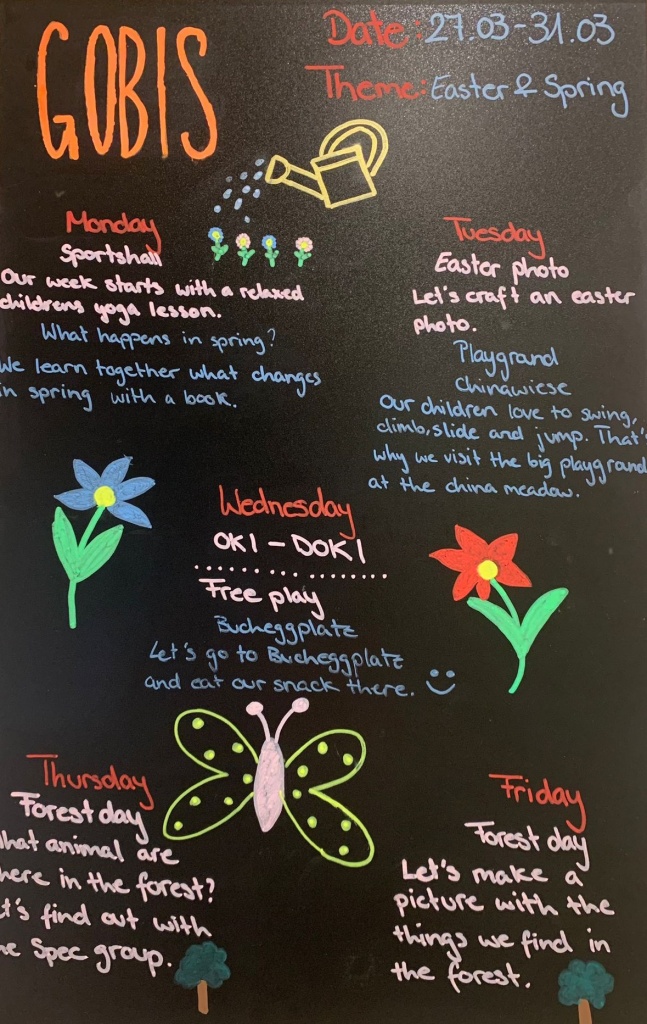 GOBIS
Date: 27.03-31.03
Theme: Easter & Spring
Monday
Sportshall
Our week starts with a relaxed
childrens yoga lesson.
What happens in spring?
We learn together what changes
in spring with a book.
Tuesday
Easter photo
Let's craft an easter
photo.
Playground
Chinawiese
Our children love to swing,
climb, slide and jump. That's
why we visit the big playground
at the china meadow.
Wednesday
OKI - DOKI
Free play
Bucheggplatz
Let's go to Bucheggplatz
and eat our snack there. :)
Thursday
Forest day
What animal are
there in the forest?
Let's find out with
the Spec group.
Friday
Forest day
Let's make a
picture with the
things we find in
the forest.